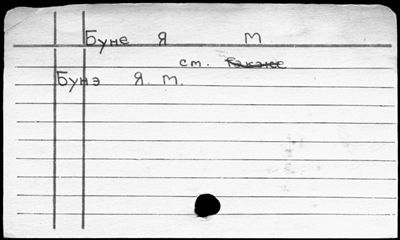 Буне Я М
см. также
Бунэ Я. М.